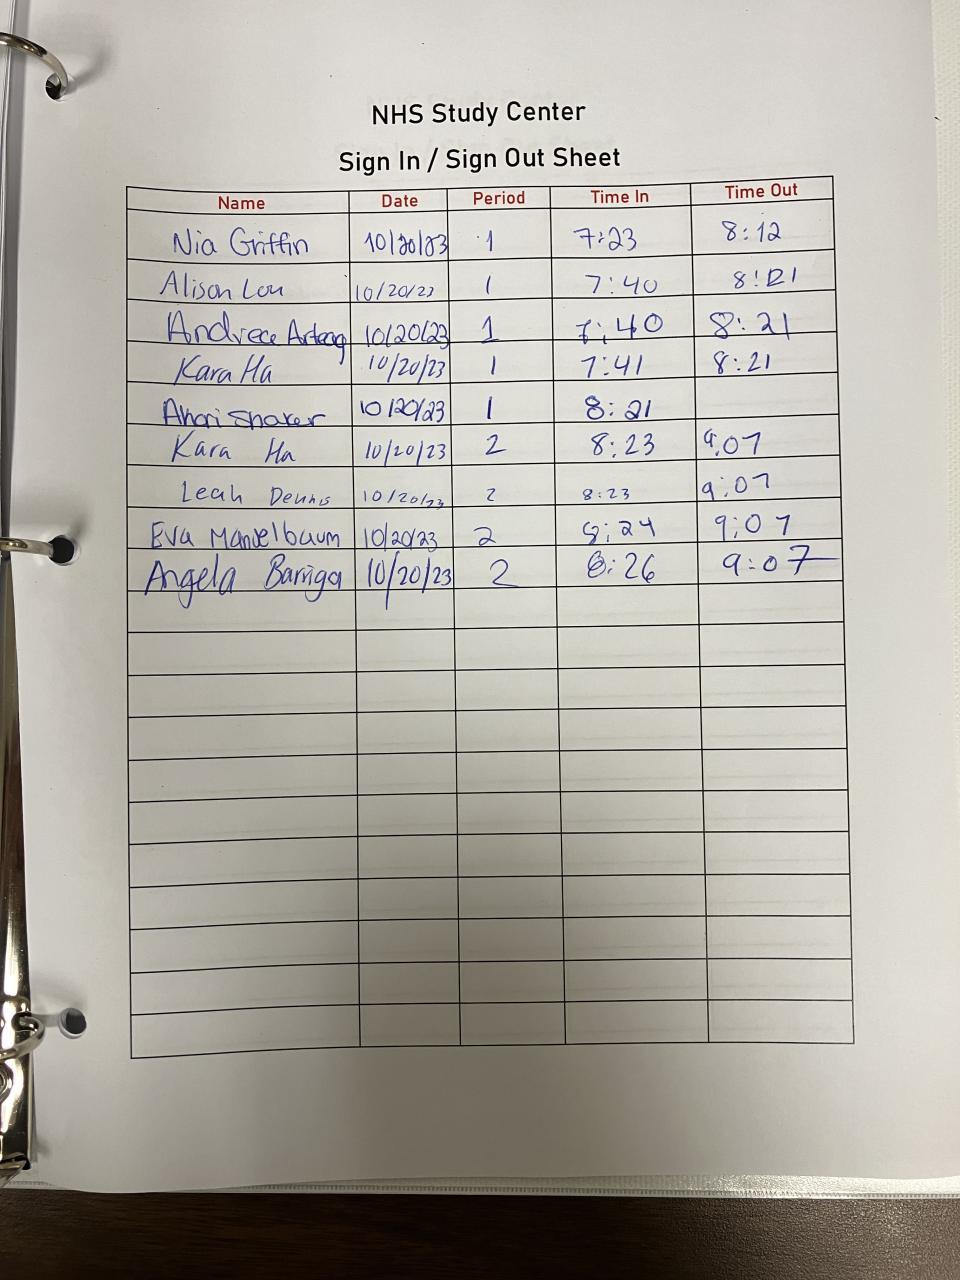 NHS Study Center
Sign In / Sign Out Sheet
Name Date Period Time In Time Out
Nia Griffin 10/20/23 1 7:23 8:12
Alison Lou 10/20/23 1 7:40 8:21
Andrece Arteag 10/20/23 1 7:40 8:21
Kara Ha 10/20/23 1 7:41 8:21
Shaker 10/20/23 1 8:21
Kara Ha 10/20/23 2 8:23 9:07
Leah Dennis 10/20/23 2 8:23 9:07
Eva Mandelbaum 10/20/23 2 8:24 9:07
Angela Barriga 10/20/23 2 8:26 9:07